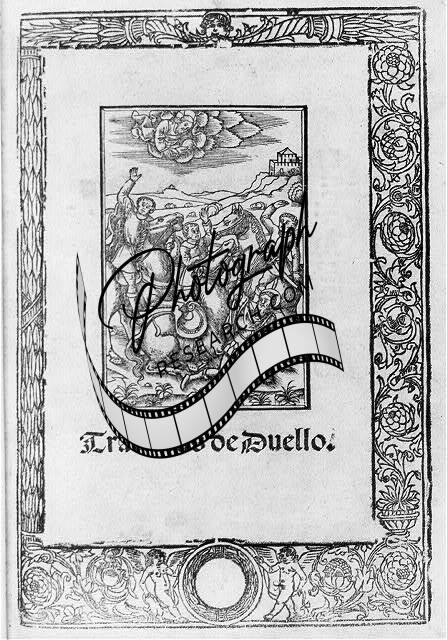 Photograph
RESEARCH.COM
de Duello.